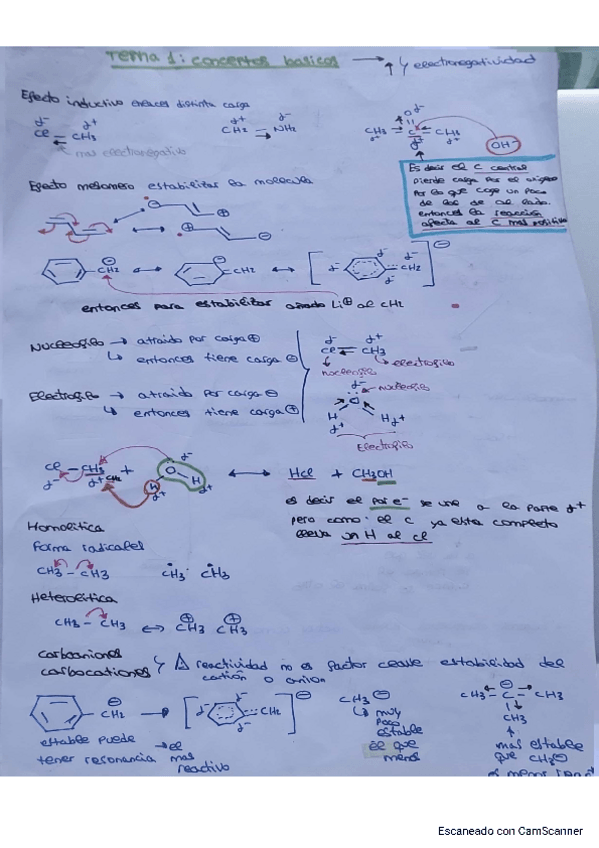 Tema 1: conceptos basicos → ↑ y electronegatividad
Efecto inductivo enlaces distinta carga
δ- δ+
Cl — CH3
← mas electronegativo
δ+ δ-
CH2 → NH2
O δ-
CH3 → C ← CH3
δ+
OH-
Es decir el C central
pierde carga por el oxigeno
por lo que coge un poco
de los de al lado.
entonces la reacción
afecta al C mas positivo
Efecto mesomero estabilizar la molecula
⊖ ⊕
⊕ ⊖
⊖ CH2 ↔ ⊖ CH2 ↔ [ δ- δ- δ- CH2 δ- ] ⊖
entonces para estabilizar añado Li⊕ al CH2
Nucleofilo → atraido por carga ⊕
↳ entonces tiene carga ⊖
Electrofilo → atraido por carga ⊖
↳ entonces tiene carga ⊕
δ- δ+
Cl ← CH3
nucleofilo
electrofilo
δ- nucleofilo
O
H δ+ H δ+
Electrofilo
Cl — CH3 + O δ- H H ↔ HCl + CH3OH
δ- δ+ δ+ δ+
es decir el par e- se une a la parte δ+
pero como el C ya esta completo
lleva un H al cl
Homolitica
forma radicales
CH3 – CH3 ĊH3 ĊH3
Heterolitica
CH3 – CH3 ↔ ⊕ CH3 ⊕ CH3
carboaniones
carbocationes y Δ reactividad no es factor clave estabilidad del
cation o anion
⊖ CH2 → [ δ- δ- δ- CH2 ] ⊖
CH3 ⊖
CH3 ← C ⊖ → CH3
CH3
estable puede
tener resonancia
→ el
mas
reactivo
↳ muy
poco
estable
el que
menos
mas estable
que CH3⊖